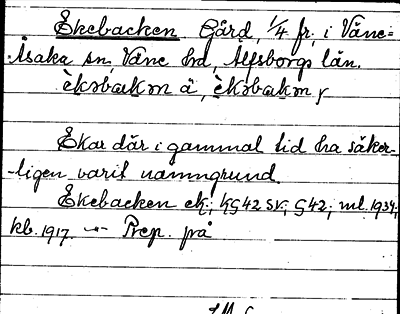 Ekebacken. Gård, 1/4 fr, i Väne=
Åsaka sn, Väne hd, Älfsborgs län.
èkəbakɷn ä, èkəbakɷn y
Ekar där i gammal tid ha säker-
-ligen varit namngrund.
Ekebacken ek; kG42 sv; G42; ml. 1934;
kb. 1917. -"- Prep. på